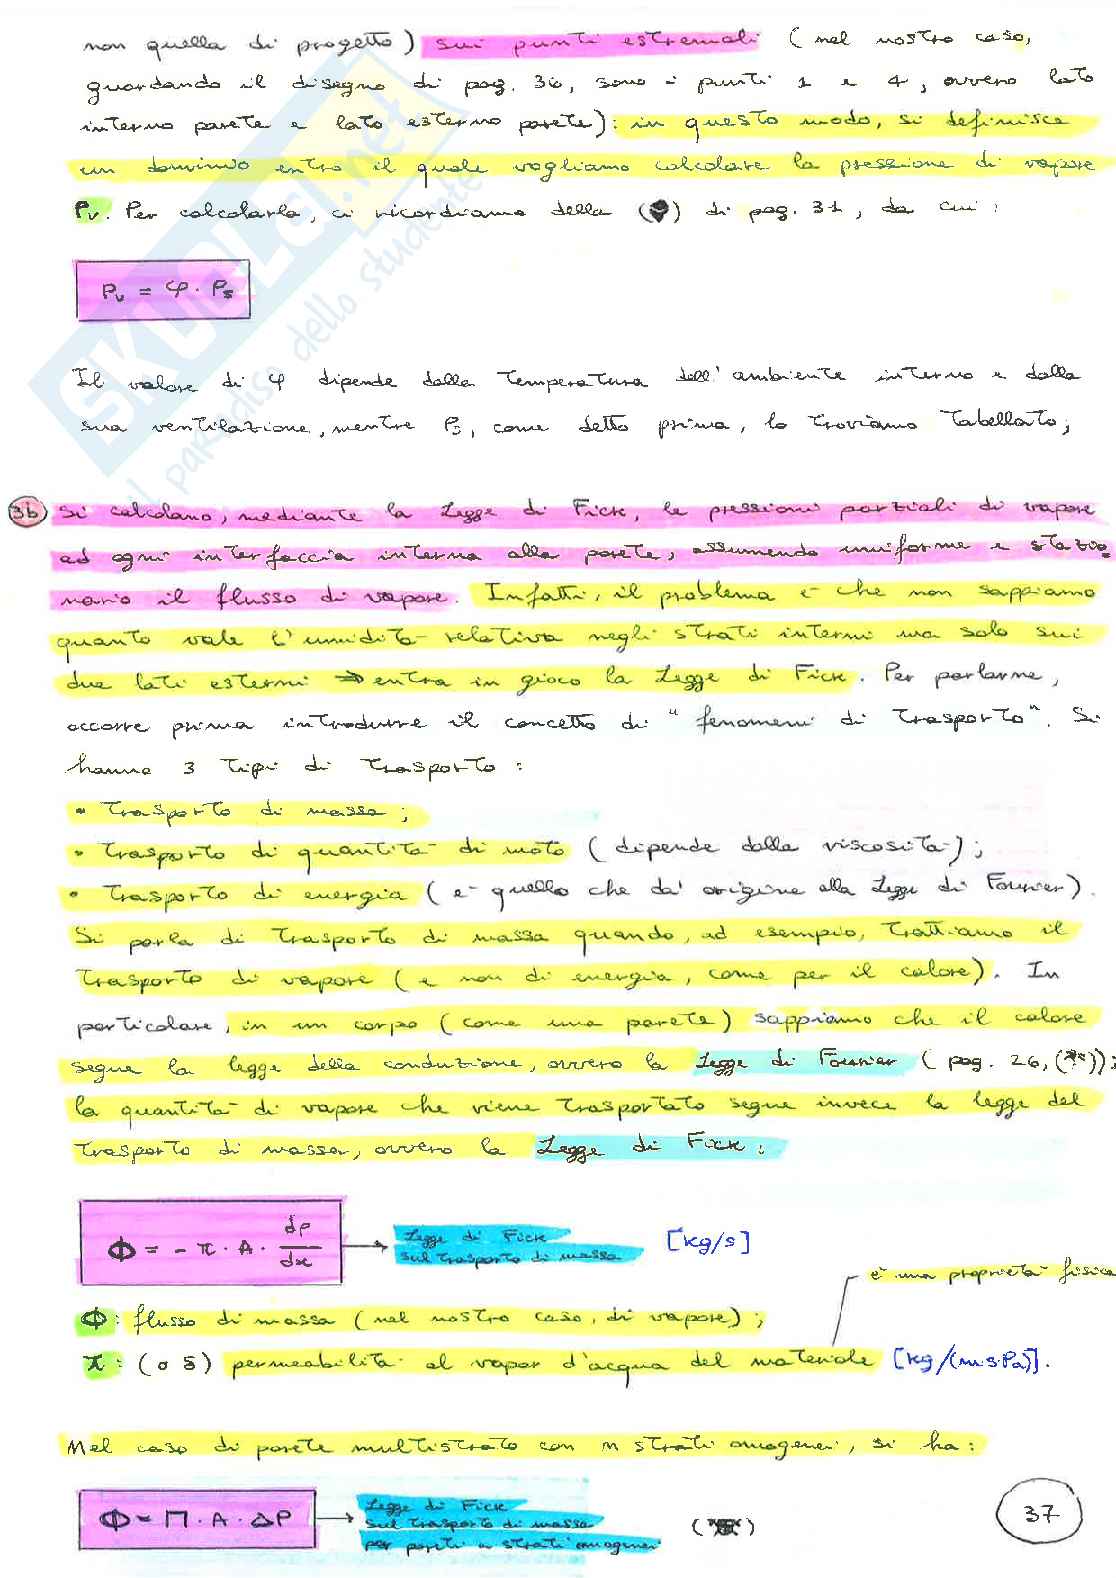 non quella di progetto) sui punti estremali (nel nostro caso,
guardando il disegno di pag. 36, sono i punti 1 e 4, ovvero lato
interno parete e lato esterno parete): in questo modo, si definisce
un dominio entro il quale vogliamo calcolare la pressione di vapore
Pv. Per calcolarla, ci ricordiamo della ( ) di pag. 31, da cui:
Pv = φ · Ps
Il valore di φ dipende dalla temperatura dell'ambiente interno e dalla
sua ventilazione, mentre Ps, come detto prima, lo troviamo tabellato;
3b) Si calcolano, mediante la Legge di Fick, le pressioni parziali di vapore
ad ogni interfaccia interna alla parete, assumendo uniforme e stazio
nario il flusso di vapore. Infatti, il problema è che non sappiamo
quanto vale l'umidità relativa negli strati interni ma solo sui
due lati esterni → entra in gioco la Legge di Fick. Per parlarne,
occorre prima introdurre il concetto di "fenomeni di trasporto". Si
hanno 3 tipi di trasporto:
• trasporto di massa;
• trasporto di quantità di moto (dipende dalla viscosità);
• trasporto di energia (è quello che dà origine alla Legge di Fourier).
Si parla di trasporto di massa quando, ad esempio, trattiamo il
trasporto di vapore (e non di energia, come per il calore). In
particolare, in un corpo (come una parete) sappiamo che il calore
segue la legge della conduzione, ovvero la Legge di Fourier (pag. 26, (**));
la quantità di vapore che viene trasportato segue invece la legge del
trasporto di massa, ovvero la Legge di Fick:
Φ = - π · A · dp/dx → Legge di Fick sul trasporto di massa [kg/s]
è una proprietà fisica
Φ: flusso di massa (nel nostro caso, di vapore);
π: (o δ) permeabilità al vapor d'acqua del materiale [kg/(m·s·Pa)].
Nel caso di parete multistrato con n strati omogenei, si ha:
Φ = Π · A · ΔP → Legge di Fick sul trasporto di massa per pareti a strati omogenei ( )
37
SKUOLA.net
il paradiso dello studente